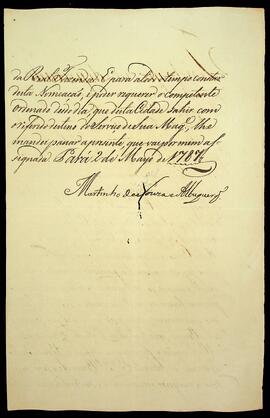 da Real Fazenda. E para a todo o tempo constar
desta Nomeação, e poder requerer o competente
Ordenado do dia, que desta Cidade sahir com
o referido destino do Serviço de Sua Mag.e, lhe
mandei passar a presente, que vay por mim as
signada. Pará 2 de Mayo de 1784
Martinho de Souza e Albuquerq.e